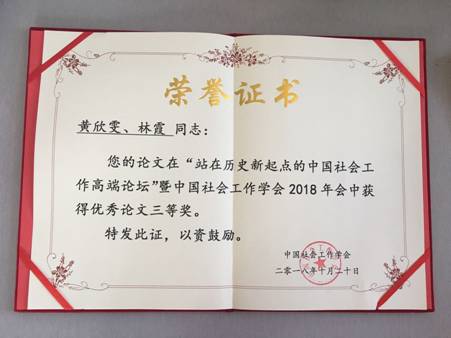 荣誉证书
黄欣雯、林霞 同志：
您的论文在“站在历史新起点的中国社会工
作高端论坛”暨中国社会工作学会2018年会中获
得优秀论文三等奖。
特发此证，以资鼓励。
中国社会工作学会
二零一八年十月二十日